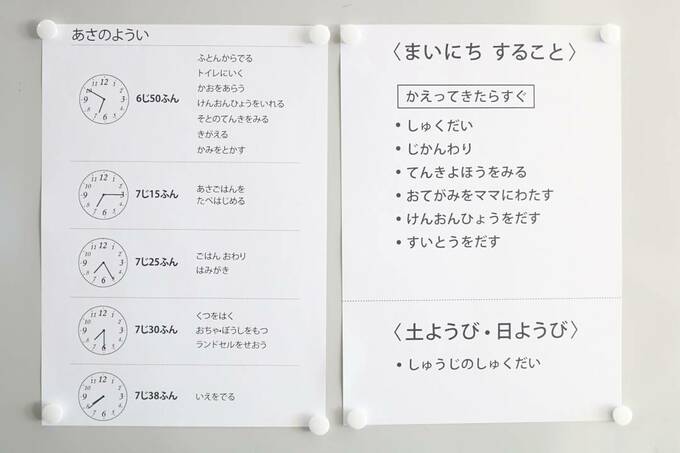 あさのようい
6じ50ふん
ふとんからでる
トイレにいく
かおをあらう
けんおんひょうをいれる
そとのてんきをみる
きがえる
かみをとかす
7じ15ふん
あさごはんを
たべはじめる
7じ25ふん
ごはん おわり
はみがき
7じ30ふん
くつをはく
おちゃ・ぼうしをもつ
ランドセルをせおう
7じ38ふん
いえをでる
〈まいにち すること〉
かえってきたらすぐ
• しゅくだい
• じかんわり
• てんきよほうをみる
• おてがみをママにわたす
• けんおんひょうをだす
• すいとうをだす
〈土ようび・日ようび〉
• しゅうじのしゅくだい